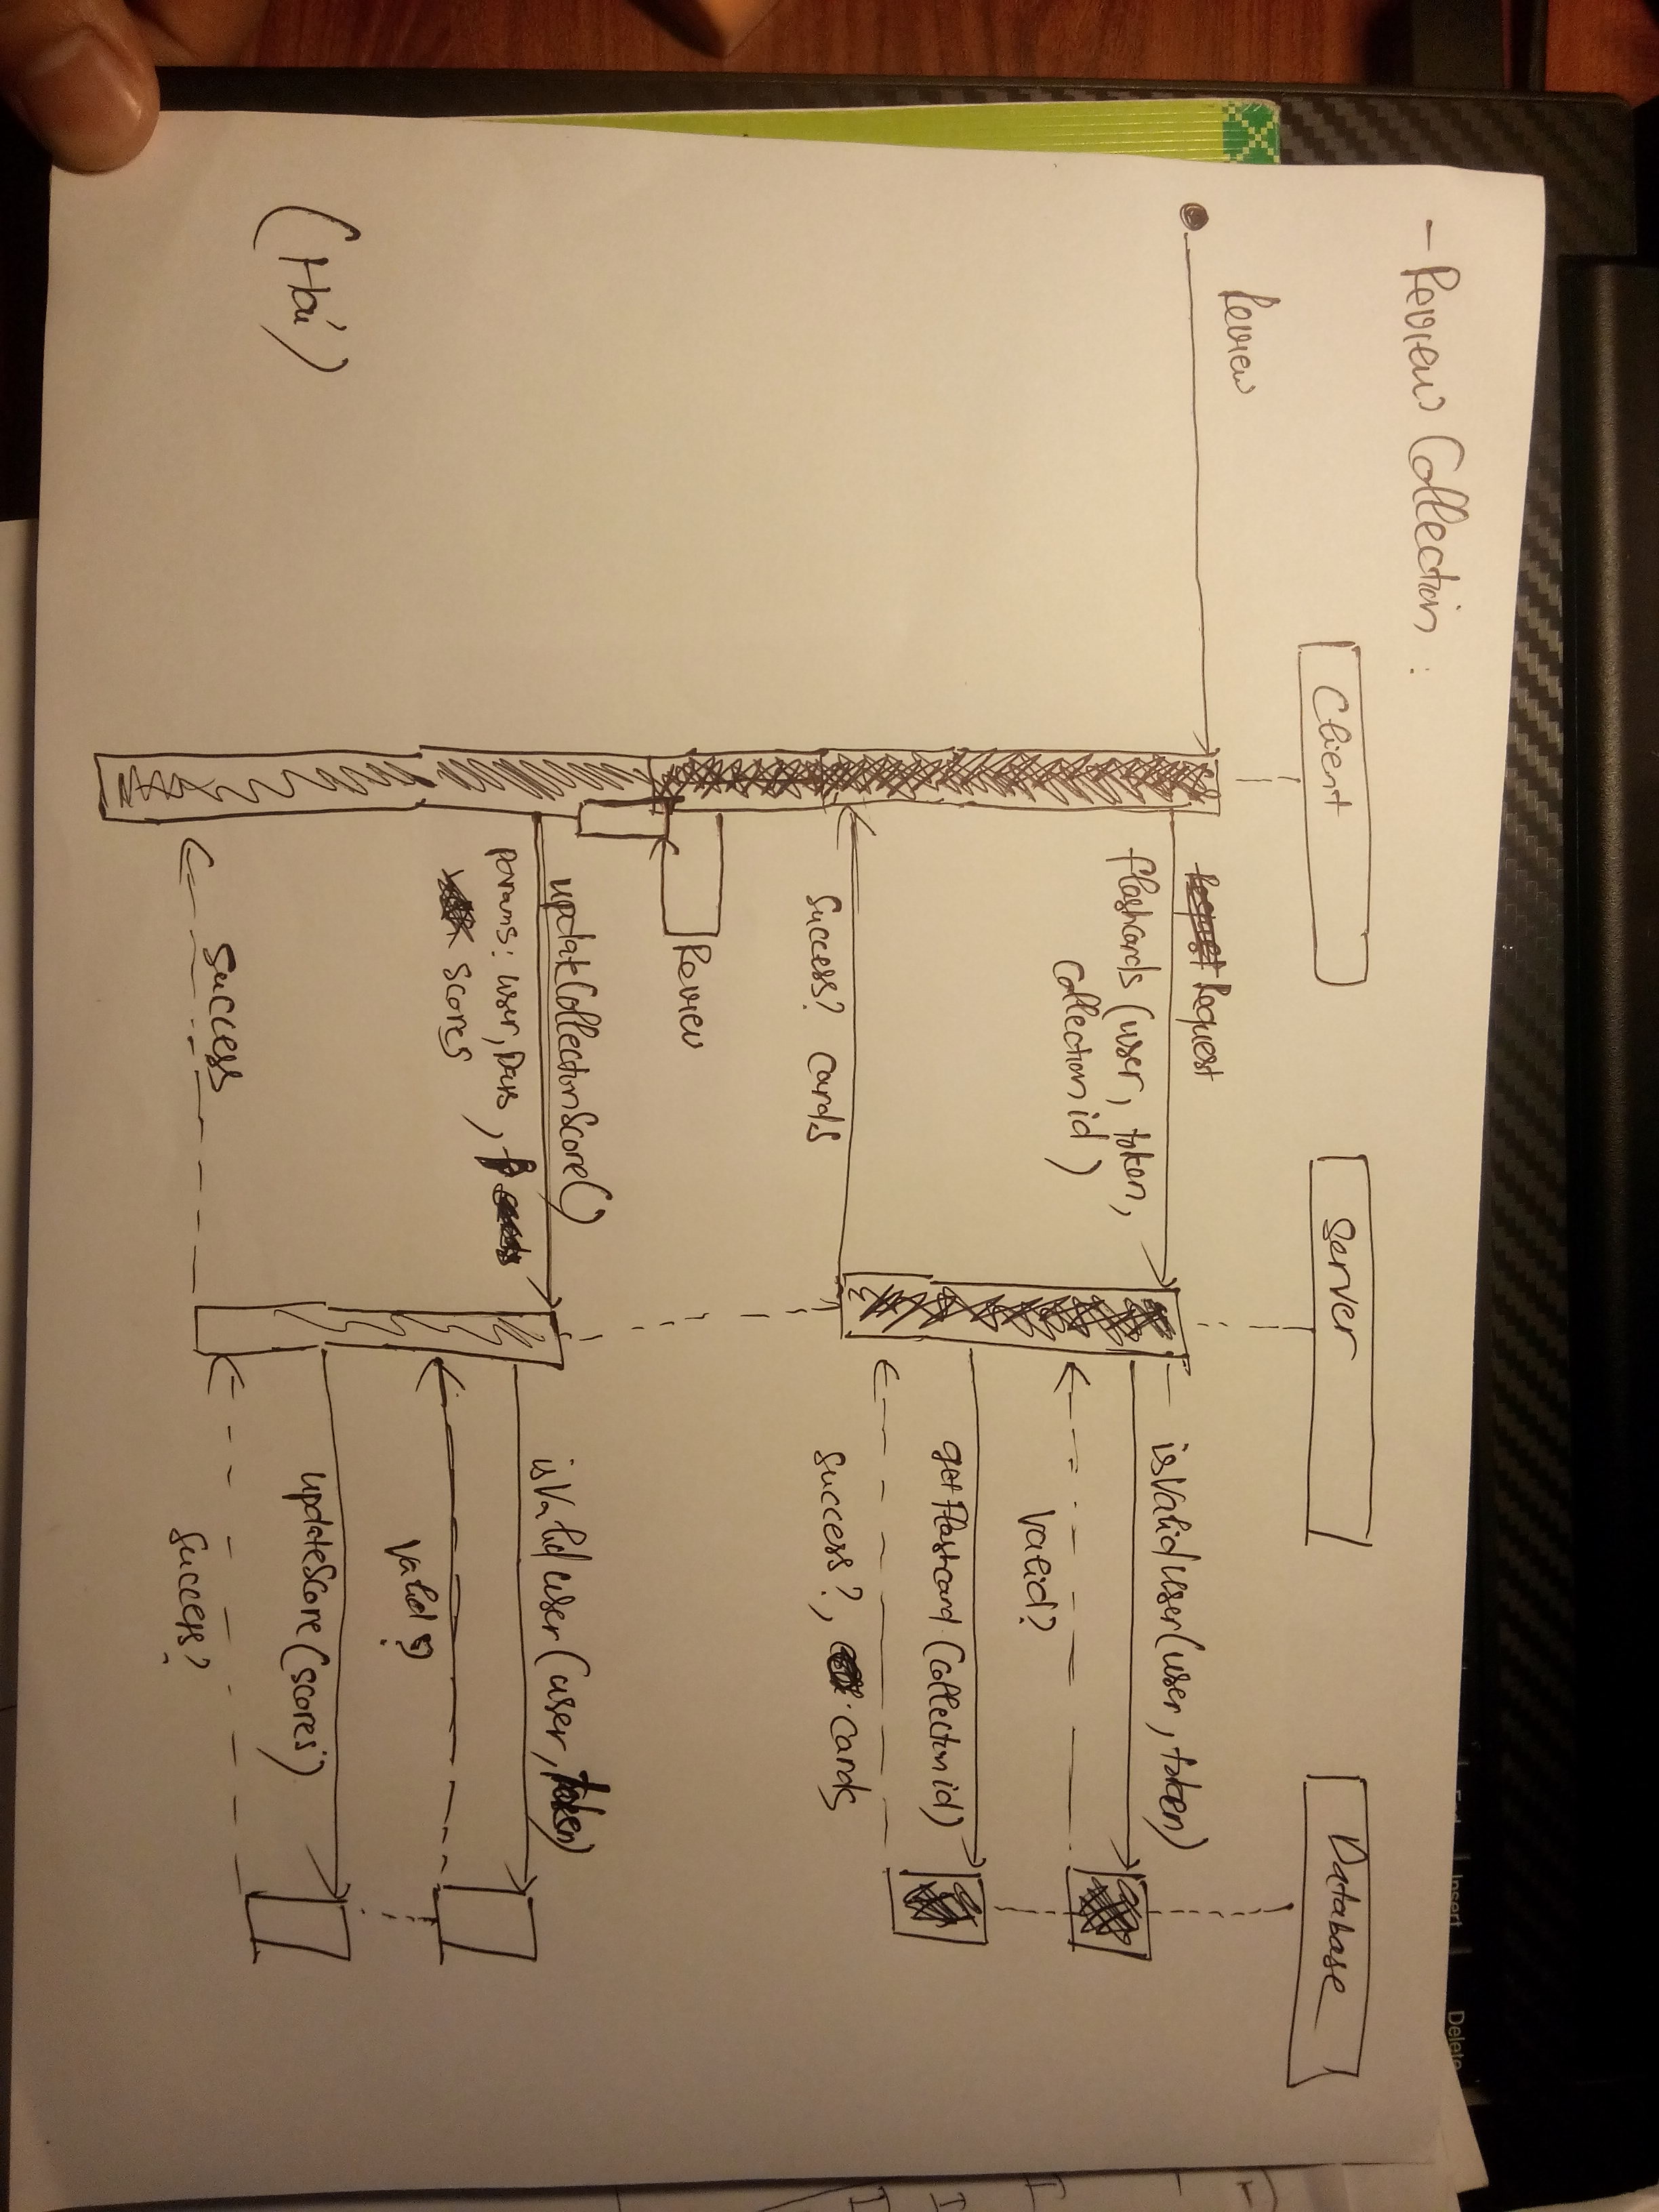 - Review Collection :
Client
Server
Database
Review
Request
flashcards (user, token,
collection id)
isValiduser(user, token)
valid?
getFlashcard (collection id)
success?, cards
success? cards
Review
updateCollectionScore()
params: user,
scores
isValiduser(user, token)
valid?
updateScore(scores)
success?
success
(Hải)
Insert
Delete